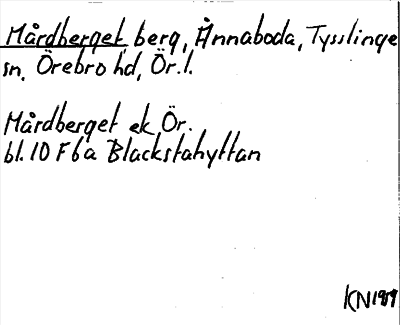 Mårdberget, berg, Ånnaboda, Tysslinge
sn, Örebro hd, Ör.l.
Mårdberget ek Ör.
bl. 10 F 6a Blackstahyttan
KN 1989